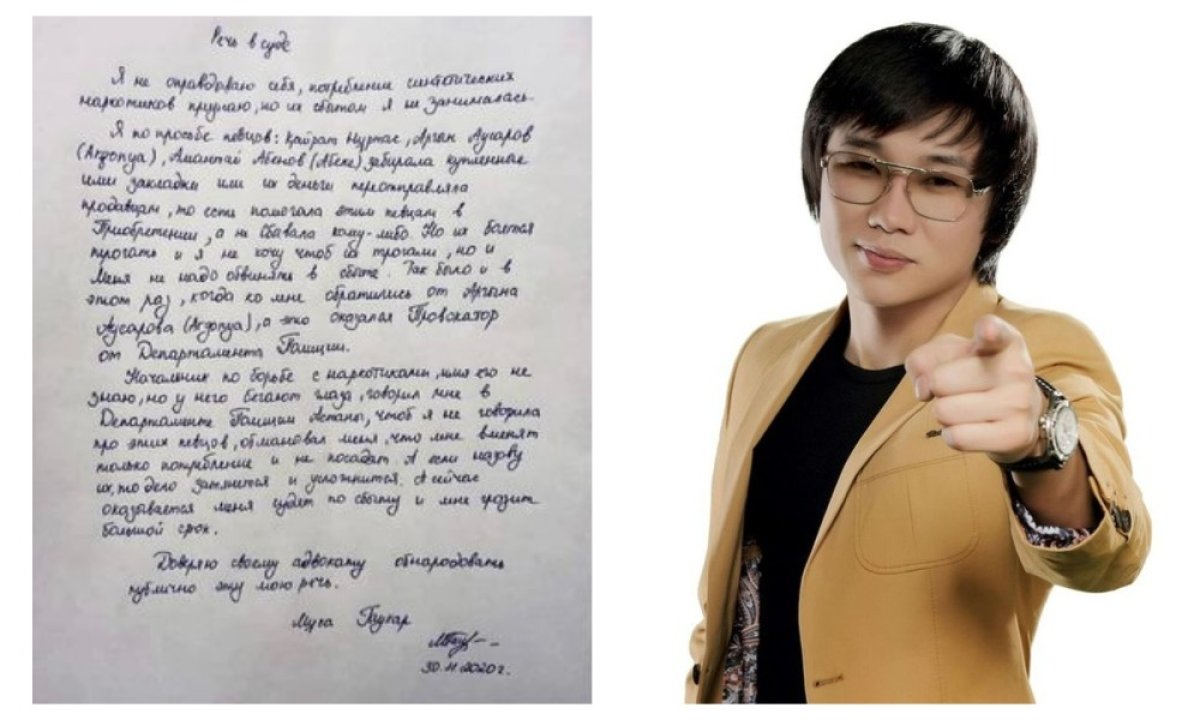 Речь в суде
Я не оправдоваю себя, потребление синтотических
наркотиков признаю, но их сбытом я не занималась.
Я по просьбе певцов: Қайрат Нуртас, Арған Аусаров
(Ағдопуа), Амантай Абенов (Абеке) забирала купленные
ими закладки или их деньги переотправляла
продавцам, то есть помогала этим певцам в
Приобретении, а не сбавала кому-либо. Но их боется
трогать и я не хочу чтоб их трогали, но и
меня не надо обвинять в сбыте. Так было и в
этот раз, когда ко мне обратились от Арғына
Аусарова (Ағдопуа), а это оказался Провокатор
от Департамента Полиции.
Начальник по борьбе с наркотиками, имя его не
знаю, но у него бегают глаза, говорил мне в
Департаменте Полиции Астаны, чтоб я не говорила
про этих певцов, обмановал меня, что мне вменят
только потребление и не посадят. А если назову
их, то дело затянется и усложнится. А сейчас
оказывается меня судят по сбыту и мне грозит
большой срок.
Доверяю своему адвокату обнародовать
публично эту мою речь.
Муса Гаухар
30.11.2020г.